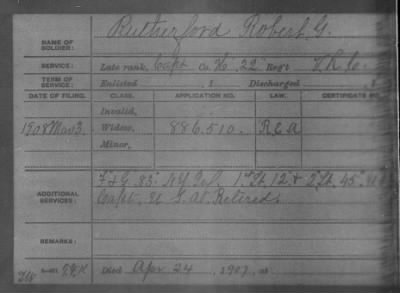 NAME OF SOLDIER: Rutherford Robert G.
SERVICE: Late rank, Capt Co. K. 22" Regt V.R.C.
TERM OF SERVICE: Enlisted , 1 Discharged , 1
DATE OF FILING. CLASS. APPLICATION NO. LAW. CERTIFICATE NO.
Invalid,
1908 Mar 3. Widow, 886.510. R&A
Minor,
ADDITIONAL SERVICES: F&G. 83" N.Y. Inf. 1" Lt. 12" & 2" Lt. 45"
Capt. U.S.A. Retired.
REMARKS:
Died Apr. 24, 1907, at